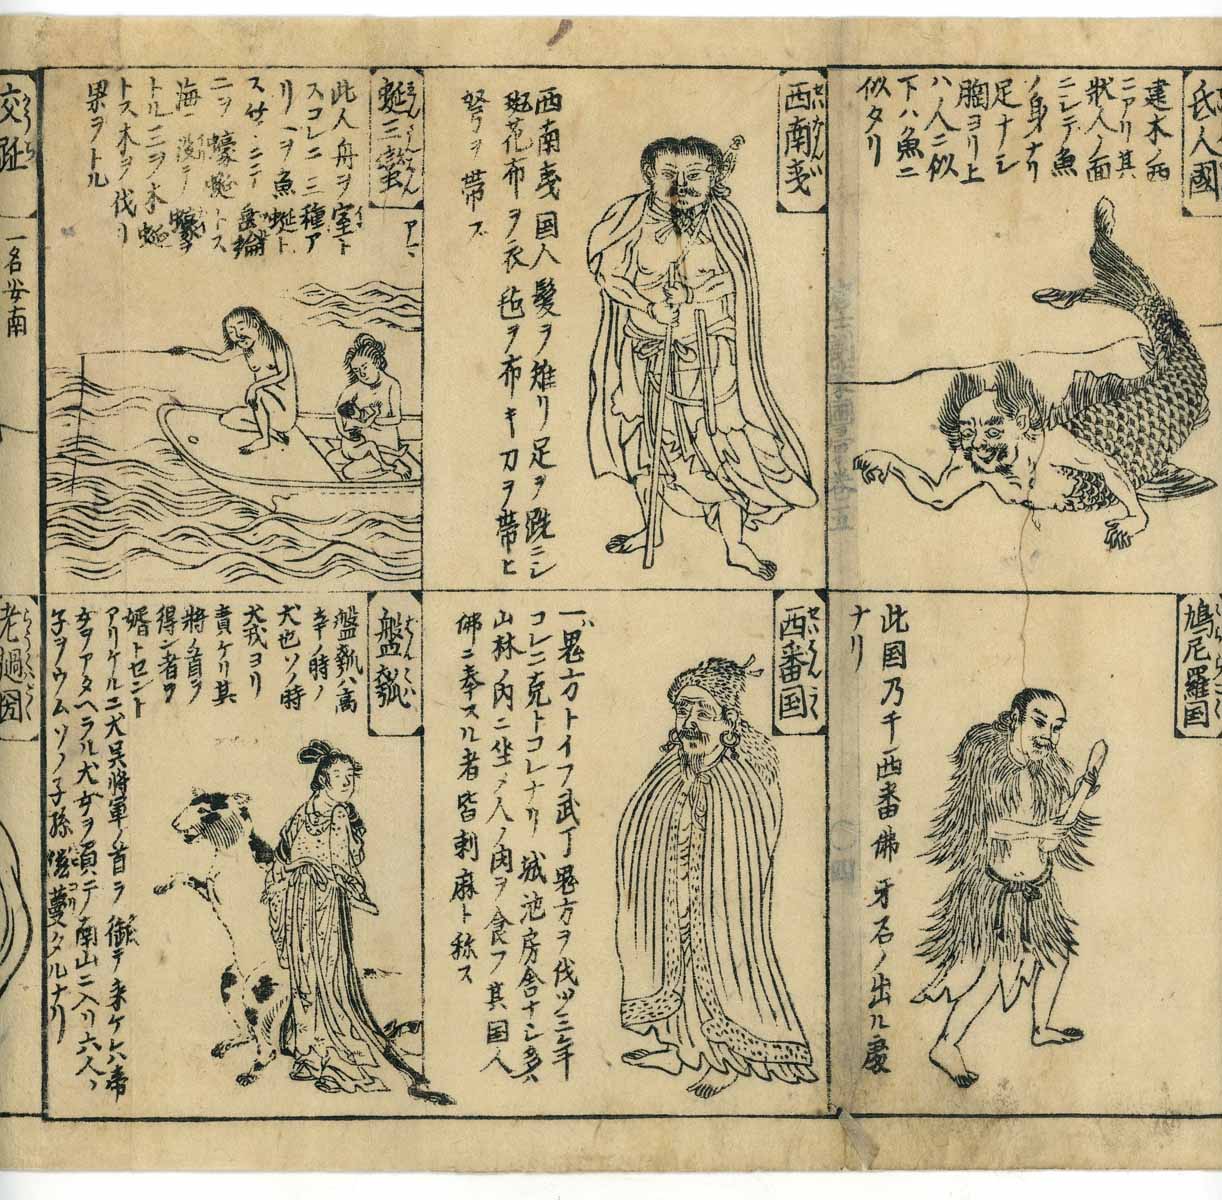 氐人國
建木ノ西
ニアリ其
状人ノ面
ニシテ魚
ノ身ナリ
足ナシ
胸ヨリ上
ハ人ニ似
下ハ魚ニ
似タリ
鳩尼羅国
此国乃千西番佛牙石ノ出ル處
ナリ
西南夷
西南夷国人髪ヲ椎リ足ヲ跣ニシ
斑花布ヲ衣毡ヲ布キ刀ヲ帶ヒ
弩ヲ帶ズ
西番国
一ハ鬼方トイフ武丁鬼方ヲ伐ツ三年
コレニ克トコレナリ城池房舎ナシ多ハ
山林ノ内ニ坐メ人ノ肉ヲ食フ其国人
佛ニ奉スル者皆剌麻ト称ス
蜒三蠻
此人舟ヲ室ト
スコレニ三種ア
リ一ヲ魚蜒ト
ニヲ蠔蜒トス
海ニ没テ蠔ヲ
トル三ヲ木蜒
トス木ヲ伐リ
果ヲトル
盤瓠
盤瓠ハ高
辛ノ時ノ
犬也ソノ時
犬戎ヨリ
責ケリ其
將ノ首ヲ
得ン者ヲ
婿トセント
アリケルニ犬呉將軍ノ首ヲ御テ来ケレハ帝
女ヲアタヘラル犬女ヲ負テ南山ニ入リ六人ノ
子ヲウムソノ子孫滋蔓クタルナリ
交趾
一名安南
老撾国